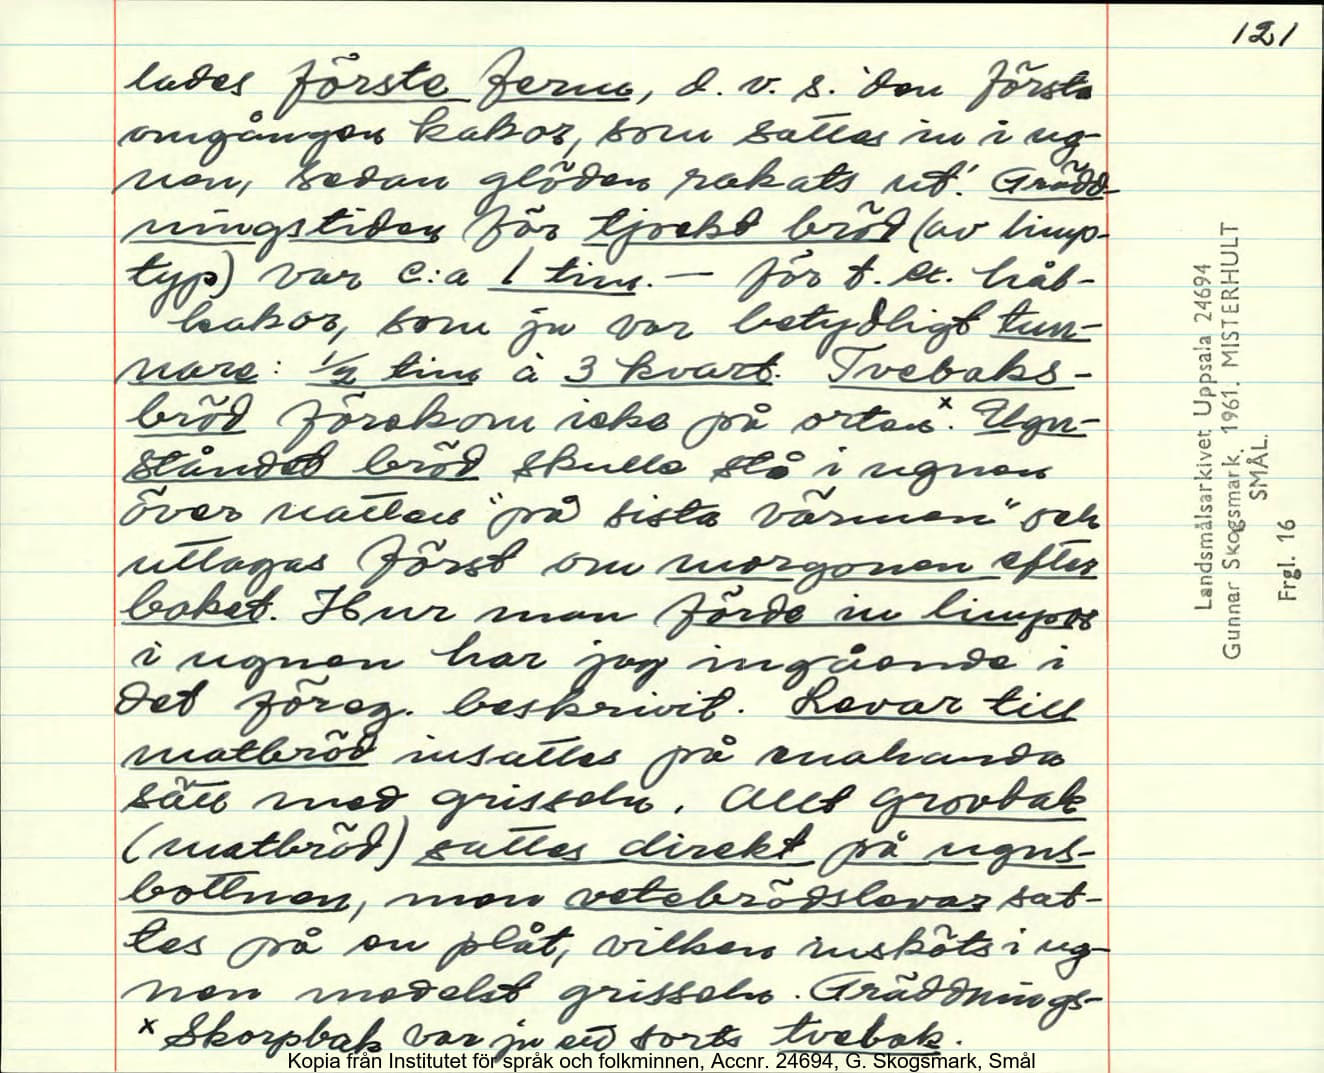 121
lades förste fernu, d. v. s. den första
omgången kakor, som sattes in i ug-
nen, sedan glöden rakats ut. Grädd-
ningstiden för tjockt bröd (av limp-
typ) var c:a 1 tim. — för t. ex. hål-
kakor, som ju var betydligt tun-
nare: 1/2 tim à 3 kvart. Tvebaks-
bröd förekom icke på orten.x Ugn-
ståndet bröd skulle stå i ugnen
över natten "på sista värmen" och
uttagas först om morgonen efter
baket. Hur man förde in limpor
i ugnen har jag ingående i
det föreg. beskrivit. Levar till
matbröd insattes på enahanda
sätt med grisseln. Allt grovbak
(matbröd) sattes direkt på ugns-
bottnen, men vetebrödslevar sat-
tes på en plåt, vilken insköts i ug-
nen medelst grisseln. Gräddnings-
x Skorpbak var ju ett sorts tvebak.
Landsmålsarkivet Uppsala 24694
Gunnar Skogsmark. 1961. MISTERHULT
SMÅL.
Frgl. 16
Kopia från Institutet för språk och folkminnen, Accnr. 24694, G. Skogsmark, Smål